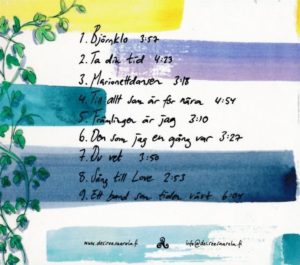 1. Björnklo 3:57
2. Ta din tid 4:23
3. Marionettdansen 3:18
4. Till allt som är för nära 4:54
5. Främlingen är jag 3:10
6. Den som jag en gång var 3:27
7. Du vet 3:50
8. Sång till Love 2:53
9. Ett band som tiden vävt 6:04
www.desireesaarela.fi info@desireesaarela.fi